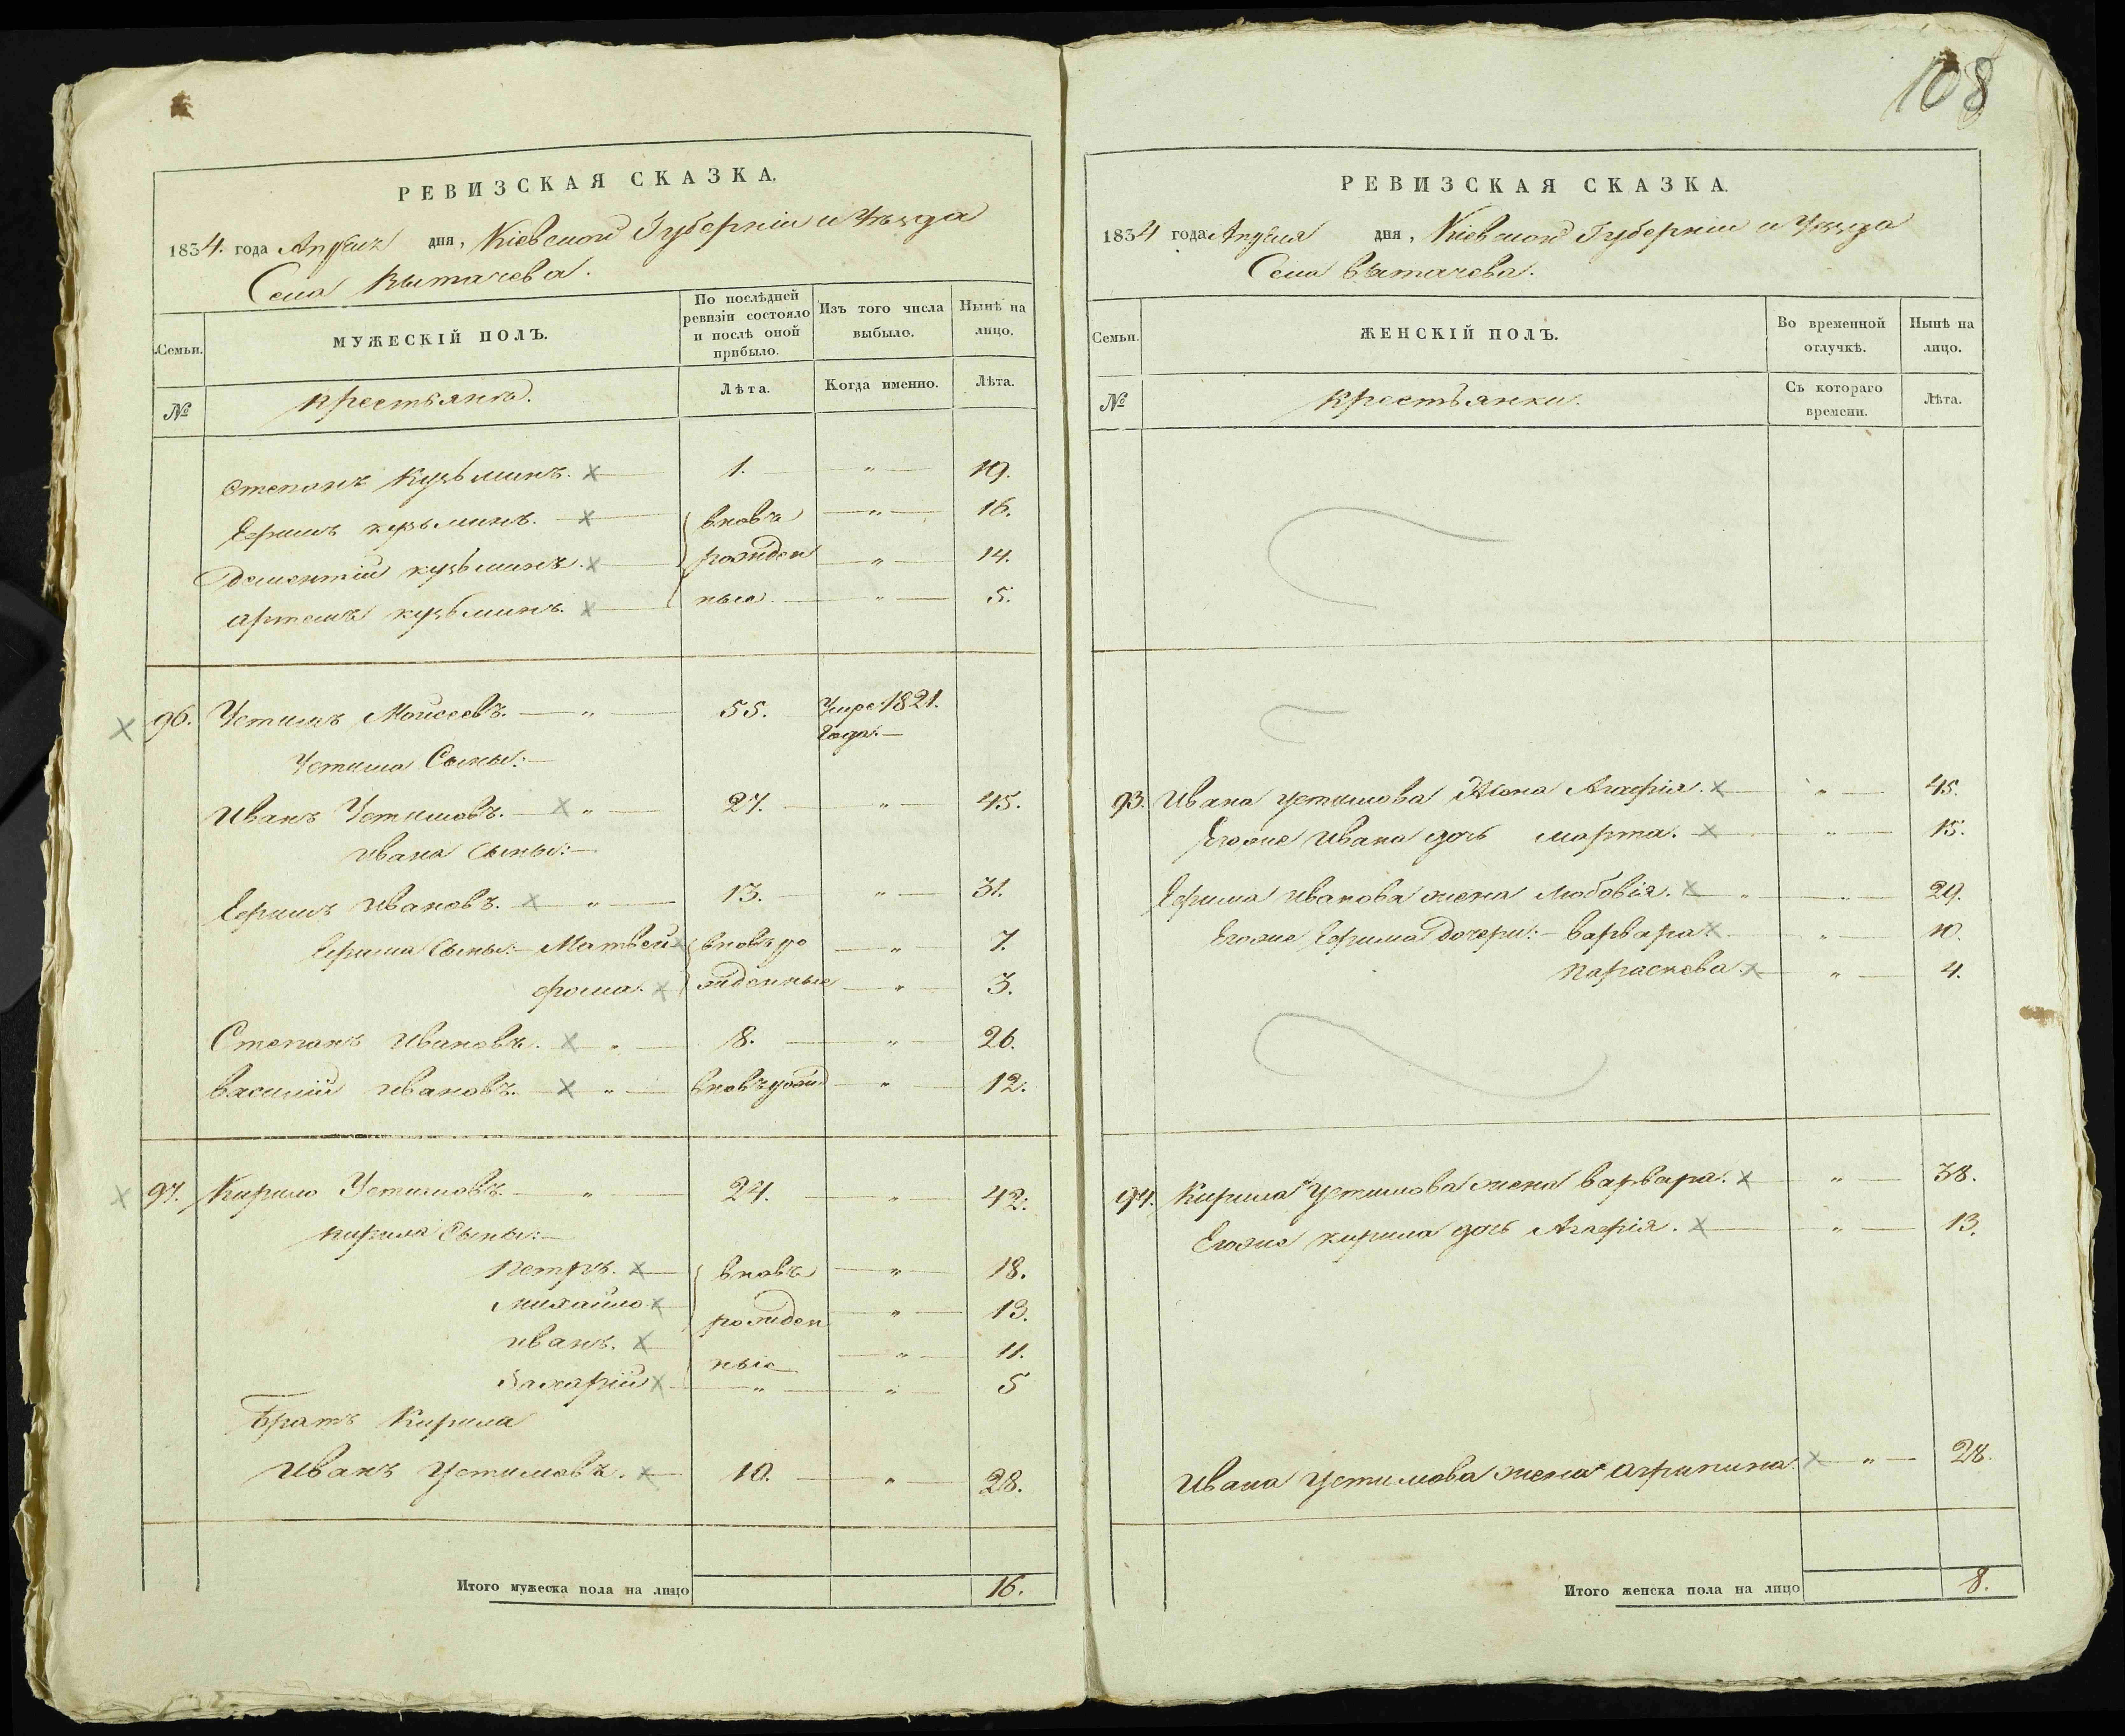 108
РЕВИЗСКАЯ СКАЗКА.
1834. года Апреля дня, Кіевской Губерніи и Уѣзда
Села Вытачева.
Семьи.
МУЖЕСКІЙ ПОЛЪ.
По послѣдней ревизіи состояло и послѣ оной прибыло.
Изъ того числа выбыло.
Нынѣ на лицо.
№
Крестьяне.
Лѣта.
Когда именно.
Лѣта.
Степанъ Кузьминъ. 1. " 19.
Ефимъ кузьминъ. вновь " 16.
Дементій кузьминъ. рожден " 14.
Артемъ кузьминъ. ные " 5.
96. Устимъ Моисеевъ. " 55. Умре: 1821.
Года.
Устима Сыны:
Иванъ Устимовъ. " 27. " 45.
Ивана Сыны:
Ефимъ Ивановъ. " 13. " 31.
Ефима Сыны: Матвей вновь ро " 7.
Фома. жденные " 3.
Степанъ Ивановъ. " 8. " 26.
Василій Ивановъ. " вновь рожд " 12.
97. Кирило Устимовъ " 24. " 42.
Кирила Сыны:
Петръ. вновь " 18.
Михайло рожден " 13.
Иванъ. ные " 11.
Захарій " " 5
Братъ Кирила
Иванъ Устимовъ. 10. " 28.
Итого мужеска пола на лицо 16.
РЕВИЗСКАЯ СКАЗКА.
1834 года Апреля дня, Кіевской Губерніи и Уѣзда
Села Вытачева.
Семьи.
ЖЕНСКІЙ ПОЛЪ.
Во временной отлучкѣ.
Нынѣ на лицо.
№
Крестьянки.
Съ котораго времени.
Лѣта.
93. Ивана Устимова Жена Агафія. " 45.
Егоже Ивана дочь Марта. " 15.
Ефима Иванова жена Любовія. " " 29.
Егоже Ефима Дочери: Варвара " 10.
Параскева. " 4.
94. Кирила Устимова жена Варвара. " 38.
Егоже кирила дочь Агафія. " 13.
Ивана Устимова жена Агрипина. " 28.
Итого женска пола на лицо 8.